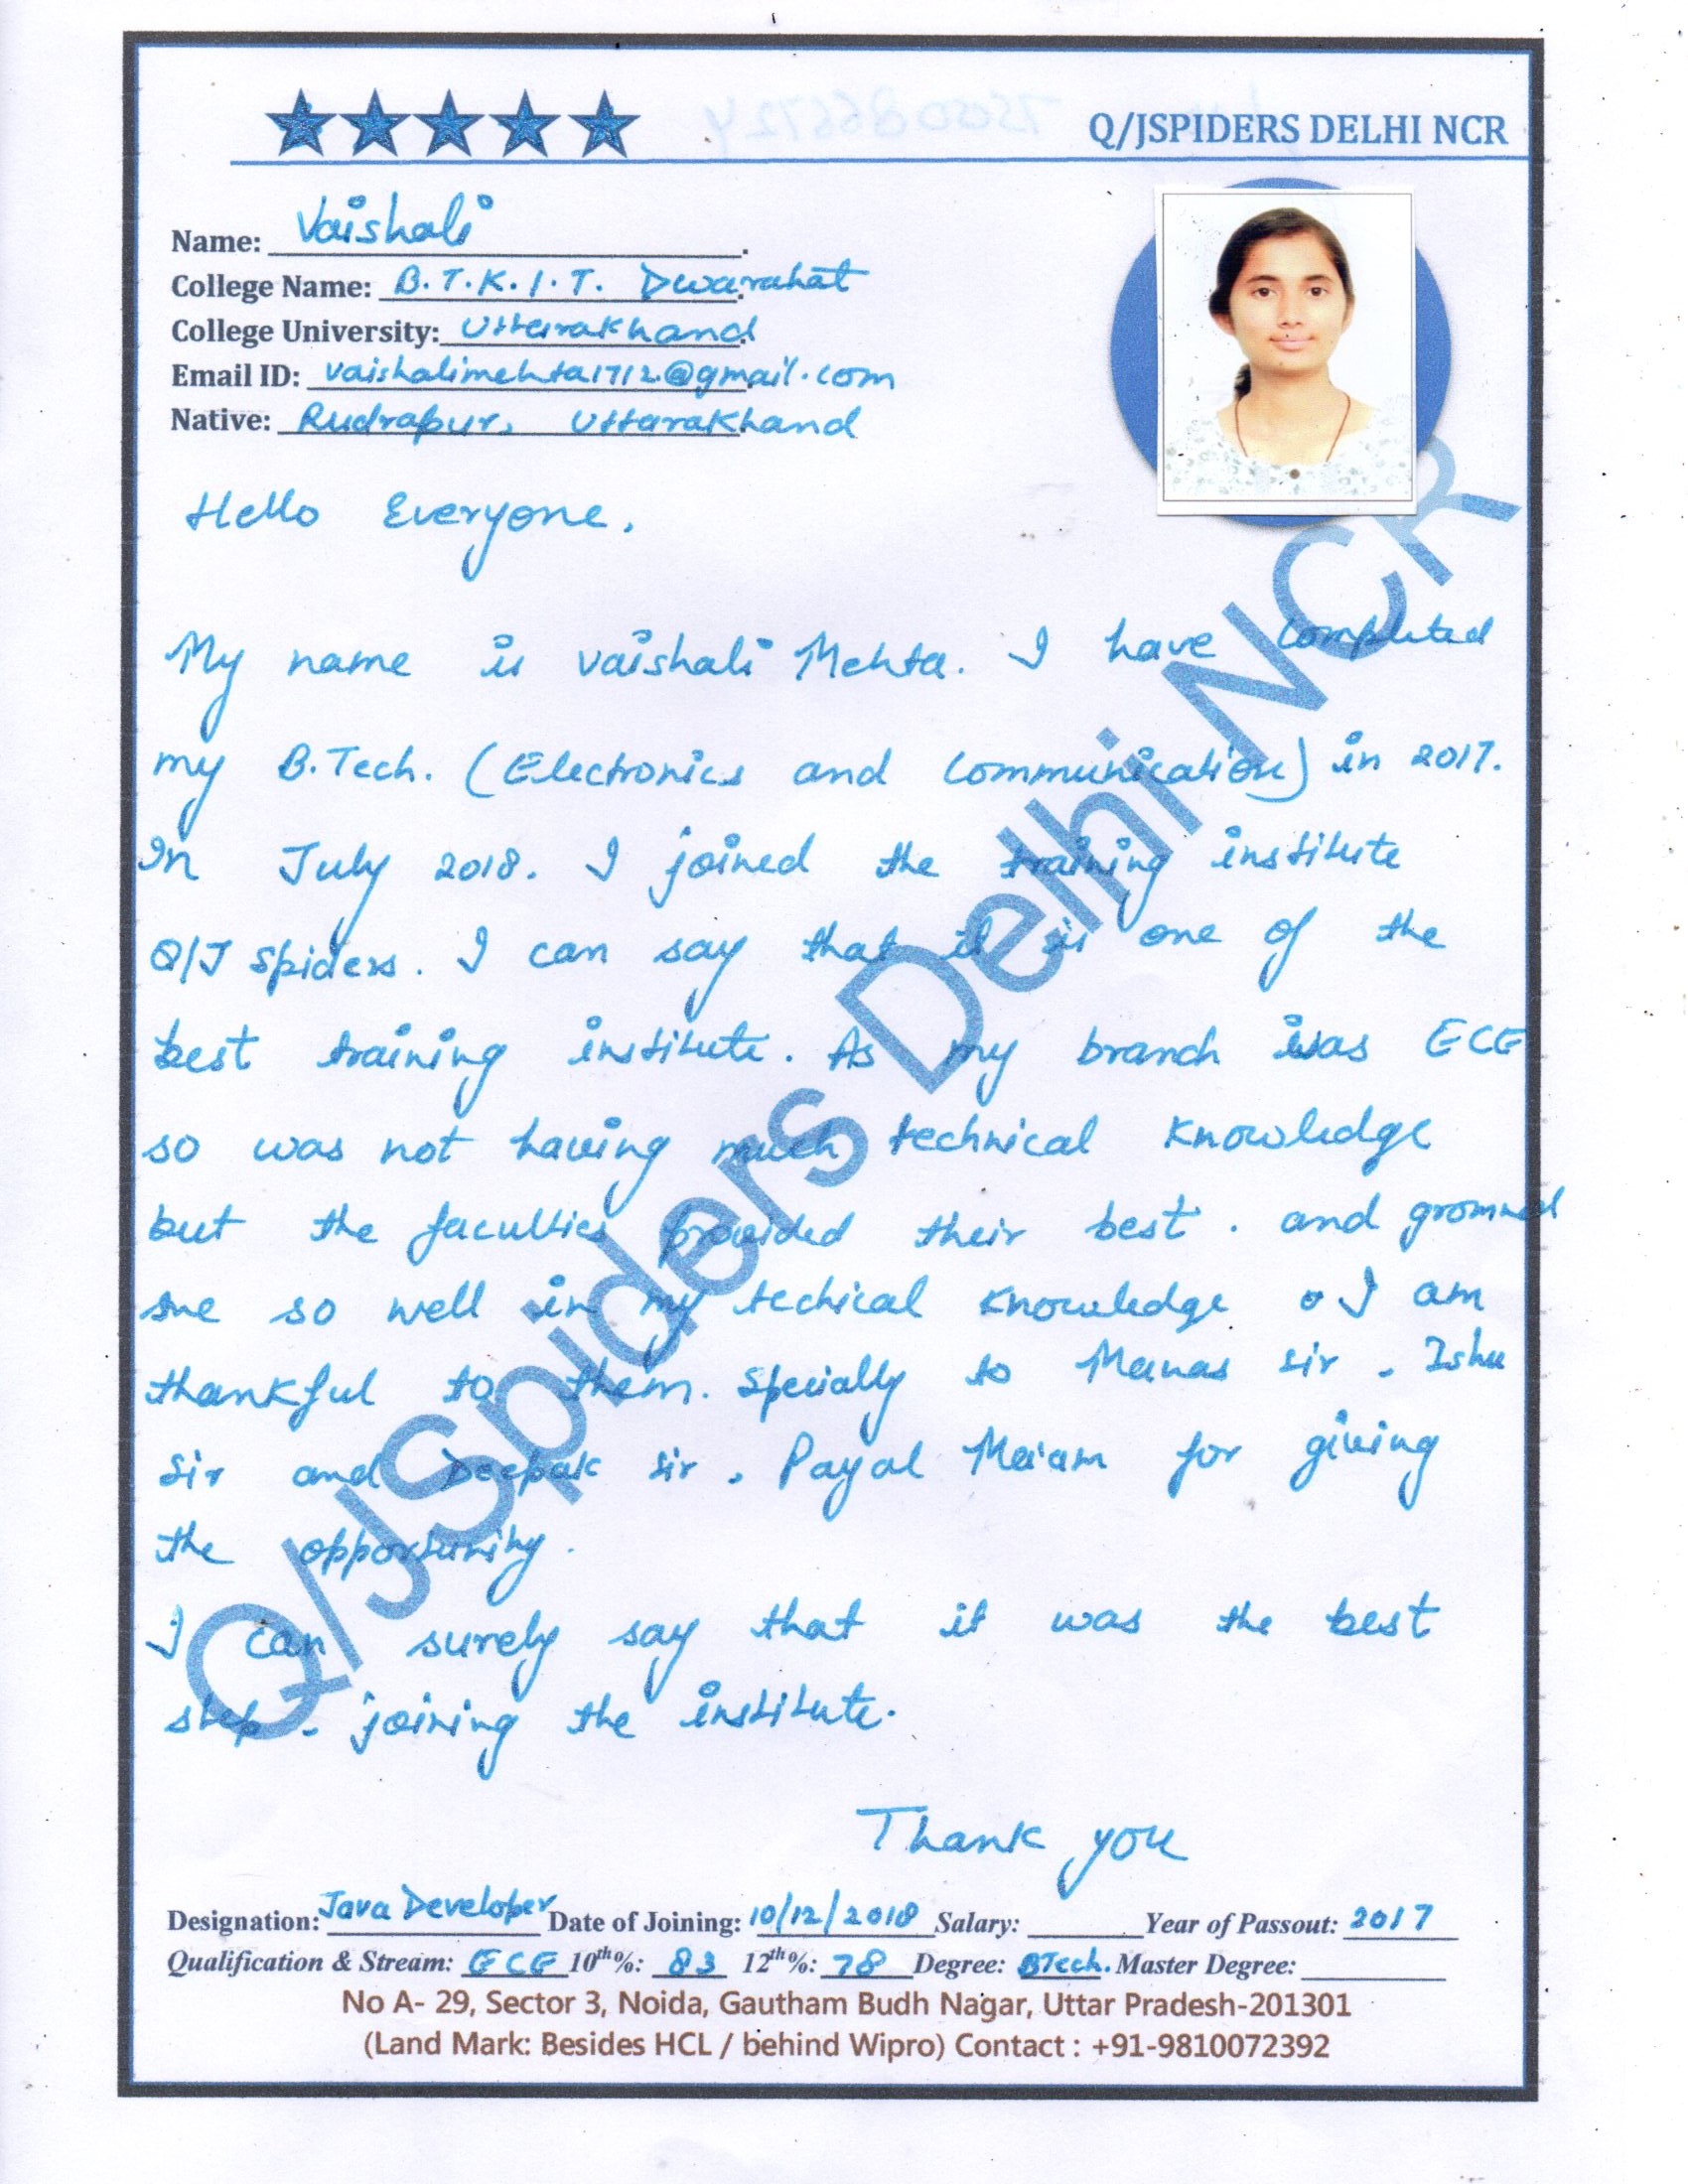 Q/JSPIDERS DELHI NCR
Name: Vaishali
College Name: B.T.K.I.T. Dwarahat
College University: Uttarakhand
Email ID: vaishalimehta1712@gmail.com
Native: Rudrapur, Uttarakhand
Hello Everyone,
My name is Vaishali Mehta. I have completed
my B.Tech. (Electronics and Communication) in 2017.
In July 2018. I joined the training institute
Q/J Spiders. I can say that it is one of the
best training institute. As my branch was ECE
so was not having much technical knowledge
but the faculties provided their best. and grommed
me so well in my techical knowledge. I am
thankful to them. Specially to Manas sir, Ishu
sir and Deepak sir, Payal Ma'am for giving
the opportunity.
I can surely say that it was the best
step, joining the institute.
Thank you
Designation: Java Developer Date of Joining: 10/12/2018 Salary: Year of Passout: 2017
Qualification & Stream: ECE 10th%: 83 12th%: 78 Degree: BTech. Master Degree:
No A- 29, Sector 3, Noida, Gautham Budh Nagar, Uttar Pradesh-201301
(Land Mark: Besides HCL / behind Wipro) Contact : +91-9810072392
Q/JSpiders Delhi NCR